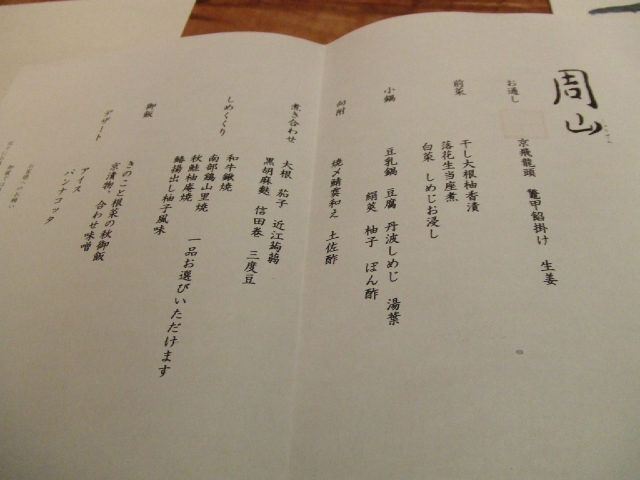 周山
お通し
京飛龍頭 鼈甲餡掛け 生姜
前菜
干し大根柚香漬
落花生当座煮
白菜 しめじお浸し
小鍋
豆乳鍋 豆腐 丹波しめじ 湯葉
絹莢 柚子 ぽん酢
向附
焼〆鯖霙和え 土佐酢
焚き合わせ
大根 茄子 近江蒟蒻
黒胡麻麩 信田巻 三度豆
しめくくり
和牛鍬焼
南部鶏山里焼
秋鮭柚庵焼
鰆揚出し柚子風味
一品お選びいただけます
御飯
きのこと根菜の秋御飯
京漬物、合わせ味噌
デザート
アイス
パンナコッタ